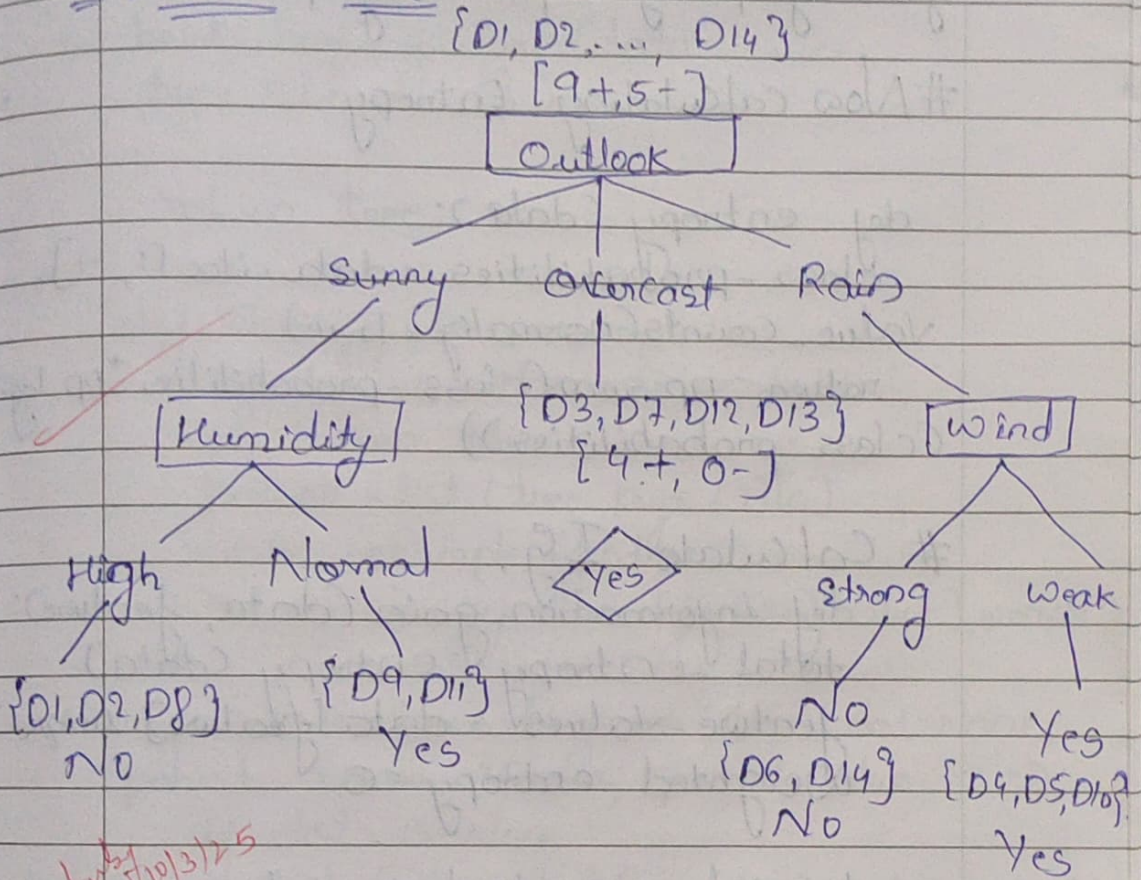 {D1, D2, ...., D14}
[9+, 5-]
Outlook
Sunny Overcast Rain
Humidity {D3, D7, D12, D13} Wind
[4+, 0-]
High Normal Yes Strong Weak
{D1, D2, D8} {D9, D11} No Yes
No Yes {D6, D14} {D4, D5, D10}
No Yes
10/3/25